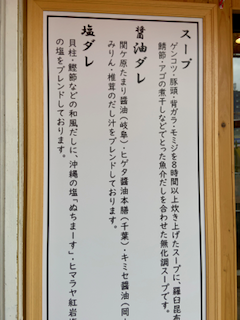 スープ
ゲンコツ・豚頭・背ガラ・モミジを8時間以上炊き上げたスープに、羅臼昆布
鯖節・アゴの煮干しなどでとった魚介だしを合わせた無化調スープです。
醤油ダレ
関ケ原たまり醤油(岐阜)・ヒゲタ醤油本膳(千葉)・キミセ醤油(岡
みりん・椎茸のだし汁をブレンドしております。
塩ダレ
貝柱・鰹節などの和風だしに、沖縄の塩「ぬちまーす」・ヒマラヤ紅岩
の塩をブレンドしております。